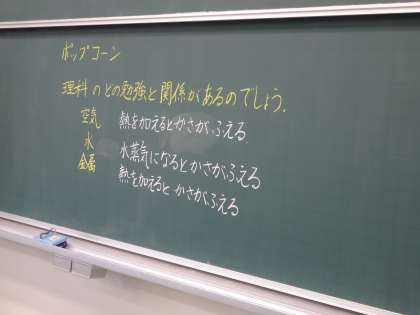 ポップコーン
理科のどの勉強と関係があるのでしょう.
空気 熱を加えるとかさがふえる.
水 水蒸気になるとかさがふえる
金属 熱を加えるとかさがふえる